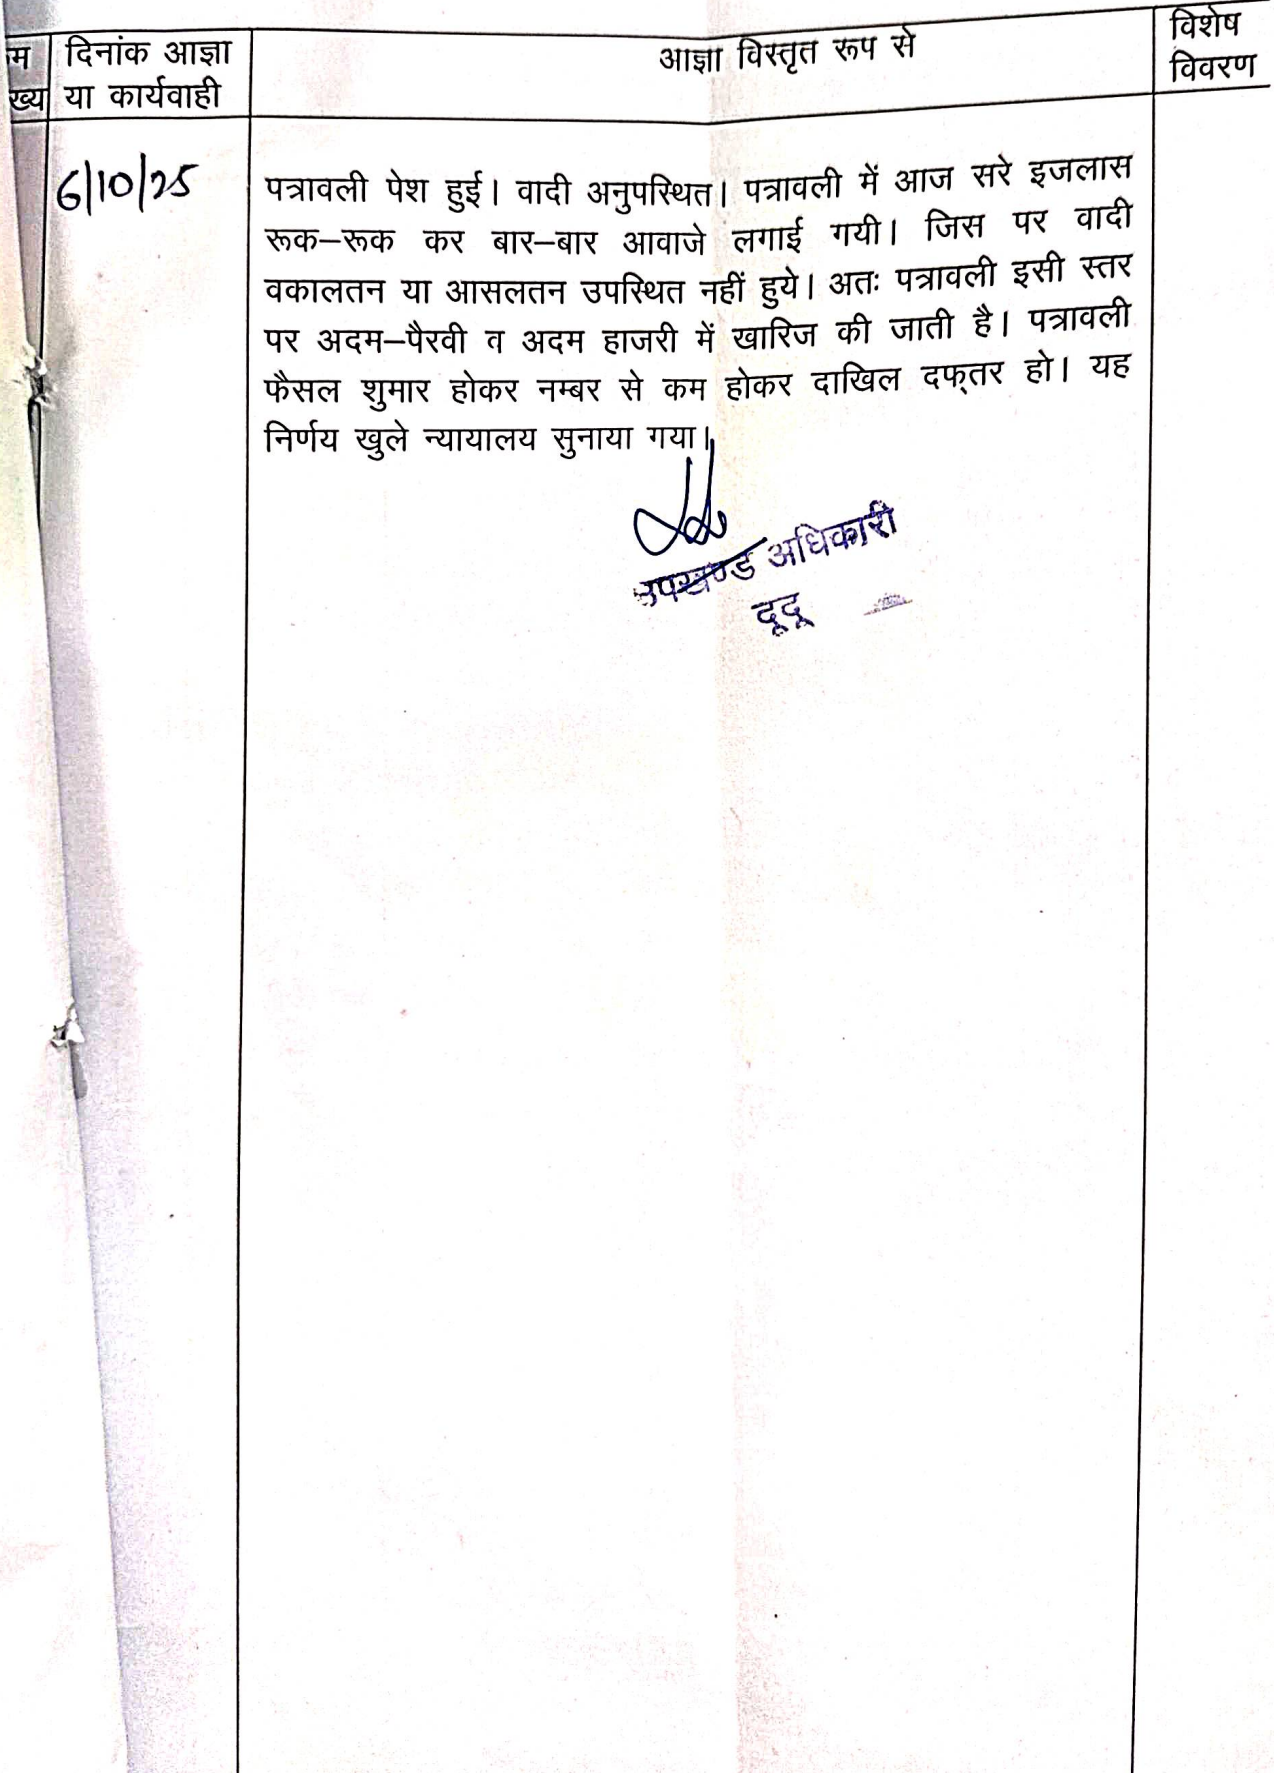 म दिनांक आज्ञा आज्ञा विस्तृत रूप से विशेष
ख्य या कार्यवाही विवरण
6/10/25
पत्रावली पेश हुई। वादी अनुपस्थित। पत्रावली में आज सरे इजलास
रूक–रूक कर बार–बार आवाजे लगाई गयी। जिस पर वादी
वकालतन या आसलतन उपस्थित नहीं हुये। अतः पत्रावली इसी स्तर
पर अदम–पैरवी व अदम हाजरी में खारिज की जाती है। पत्रावली
फैसल शुमार होकर नम्बर से कम होकर दाखिल दफ्तर हो। यह
निर्णय खुले न्यायालय सुनाया गया।
उपखण्ड अधिकारी
दूदू